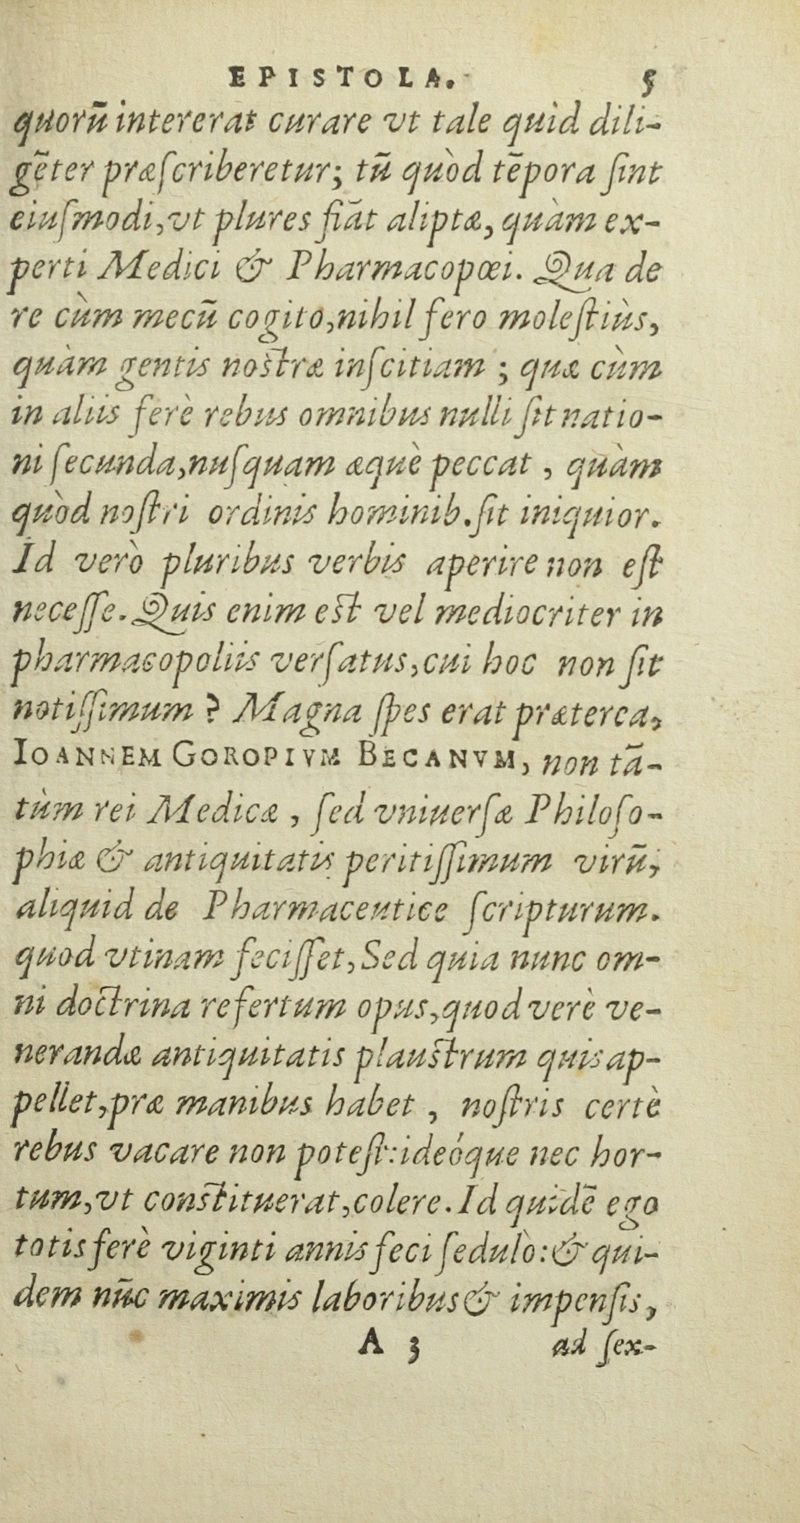 EPISTOLA. 5
quorū intererat curare vt tale quid dili-
gēter præſcriberetur; tū quòd tēpora ſint
eiuſmodi,vt plures fiāt aliptæ, quàm ex-
perti Medici & Pharmacopœi. Qua de
re cùm mecū cogito,nihil fero moleſtiùs,
quàm gentis noſtræ inſcitiam ; quæ cùm
in aliis ferè rebus omnibus nulli ſit natio-
ni ſecunda,nuſquam æquè peccat, quàm
quòd noſtri ordinis hominib.ſit iniquior.
Id verò pluribus verbis aperire non eſt
neceſſe.Quis enim eſt vel mediocriter in
pharmacopoliis verſatus,cui hoc non ſit
notiſſimum ? Magna ſpes erat præterea,
IOANNEM GOROPIVM BECANVM, non tā-
tùm rei Medicæ , ſed vniuerſæ Philoſo-
phiæ & antiquitatis peritiſſimum virū,
aliquid de Pharmaceutice ſcripturum.
quod vtinam feciſſet,Sed quia nunc om-
ni doctrina refertum opus,quod verè ve-
nerandæ antiquitatis plauſtrum quis ap-
pellet,præ manibus habet , noſtris certè
rebus vacare non poteſt:ideóque nec hor-
tum,vt conſtituerat,colere.Id quidē ego
totis ferè viginti annis feci ſedulò:& qui-
dem nūc maximis laboribus & impenſis,
A 3 ad ſex-